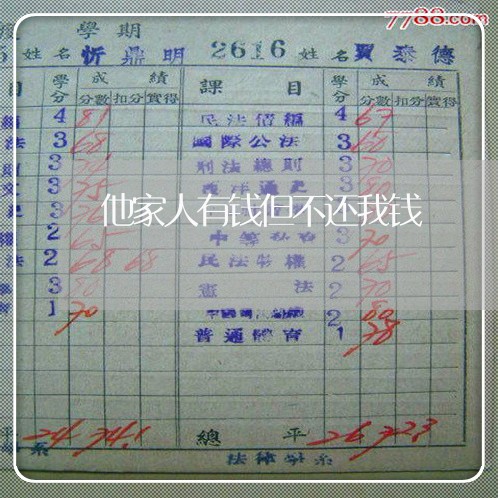 7788.com
度 學期
5 姓名 忻鼎明 2616 姓名 賈泰德
目 學分 成績 課目 學分 成績
分數 扣分 實得 分數 扣分 實得
4 81 民法債編 4 67
法 3 68 國際公法 3 60
則 3 刑法總則 3 70
3 75 西洋通史 3 80
他家人有钱但不还我钱
2 65 中等 3 70
法 2 68 68 民法物權 2 65
3 80 憲法 2 70
育 1 70 2 80
普通體育 1 78
平 24 74.1 總平 26 72.3
系 法律學系